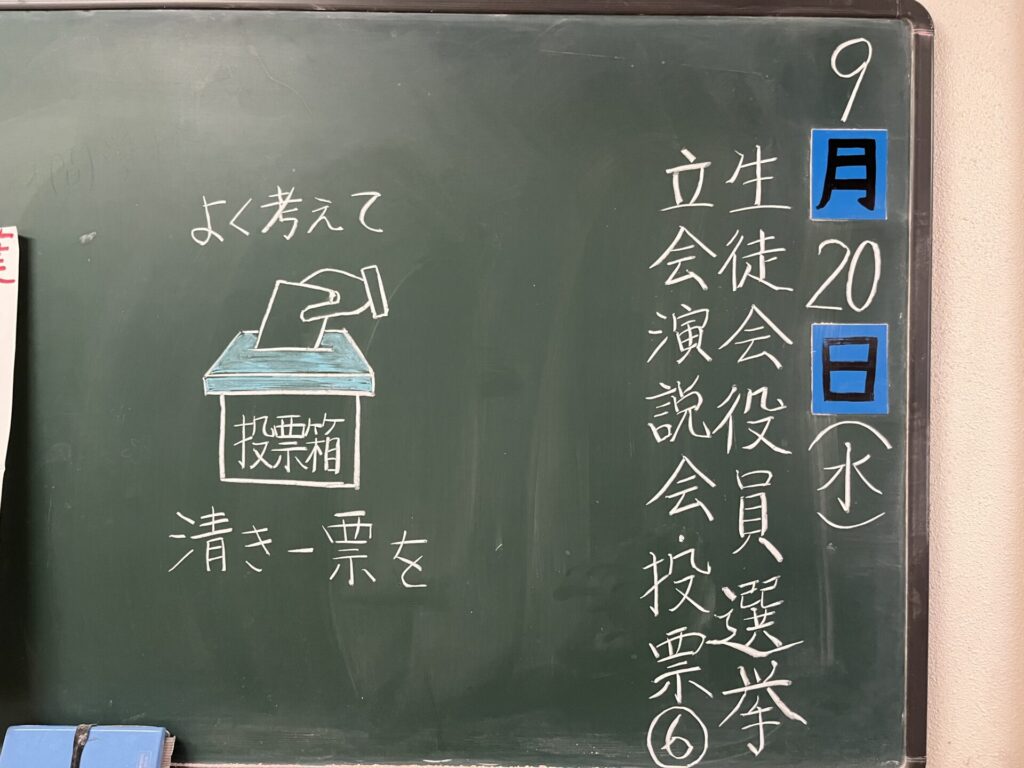 9月20日(水)
生徒会役員選挙
立会演説会・投票⑥
よく考えて
投票箱
清き一票を